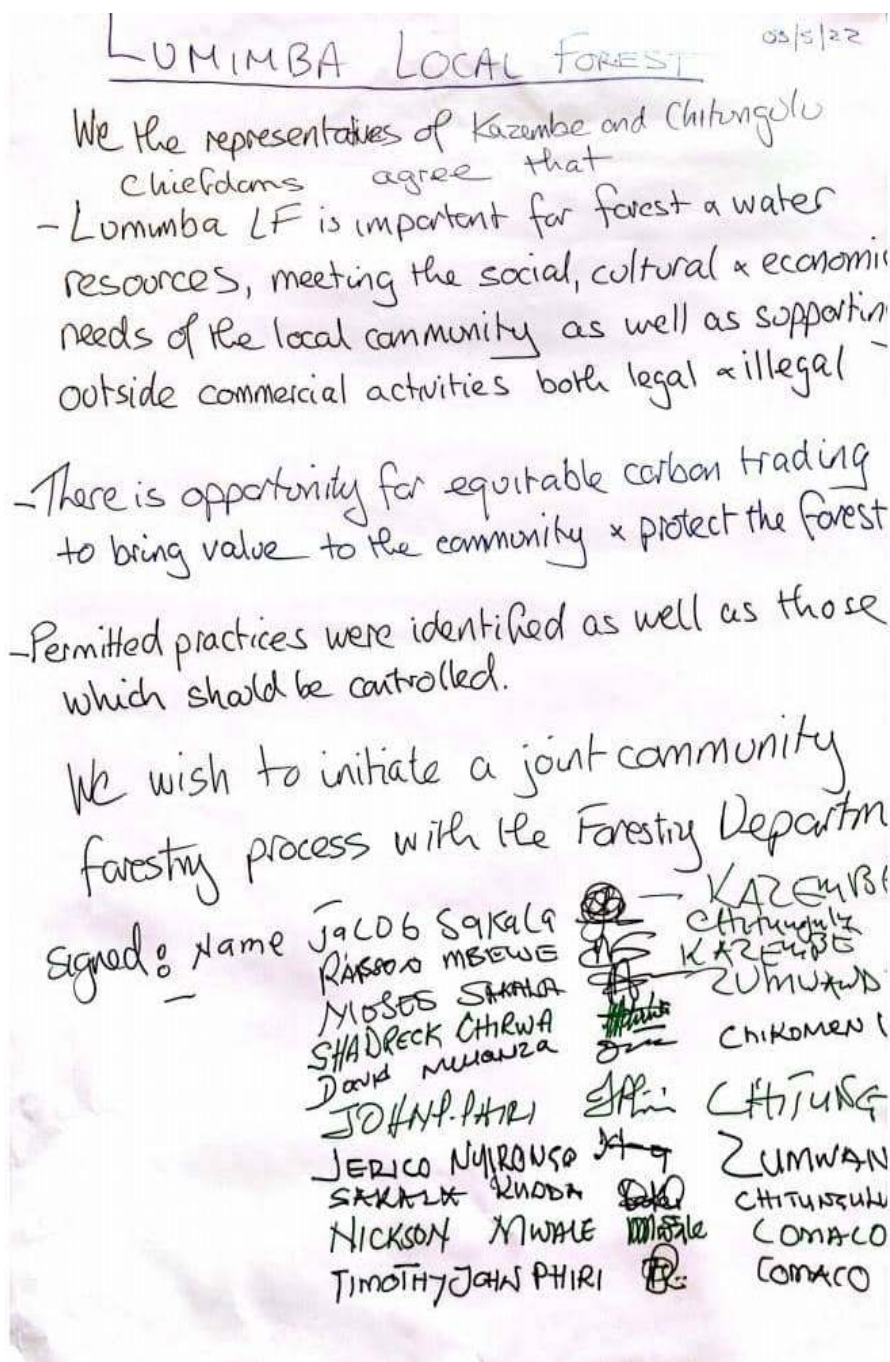 LUMIMBA LOCAL FOREST 03/5/22
We the representatives of Kazembe and Chitungulu
Chiefdoms agree that
- Lumimba LF is important for forest & water
resources, meeting the social, cultural & economic
needs of the local community as well as supportin
outside commercial activities both legal & illegal
- There is opportunity for equitable carbon trading
to bring value to the community & protect the forest
- Permitted practices were identified as well as those
which should be controlled.
We wish to initiate a joint community
forestry process with the Forestry Departm
Signed: Name Jacob Sakala KAZEMBE
MBEWE Chitungulu
MOSES SAKALA KAZEMBE
SHADRECK CHIRWA ZUMWAND
David Mwanza CHIKOMENI
JOHN P. PHIRI CHITUNG
JERICO NYIRONGO ZUMWAN
SAKALA KHODA CHITUNGULU
NICKSON MWALE COMACO
TIMOTHY JOHN PHIRI COMACO